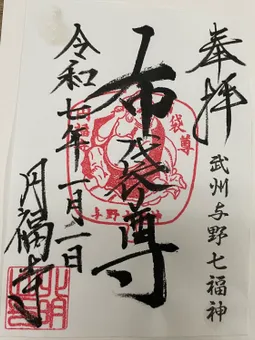 奉拝
武州与野七福神
布袋尊
令和七年一月二日
円福寺